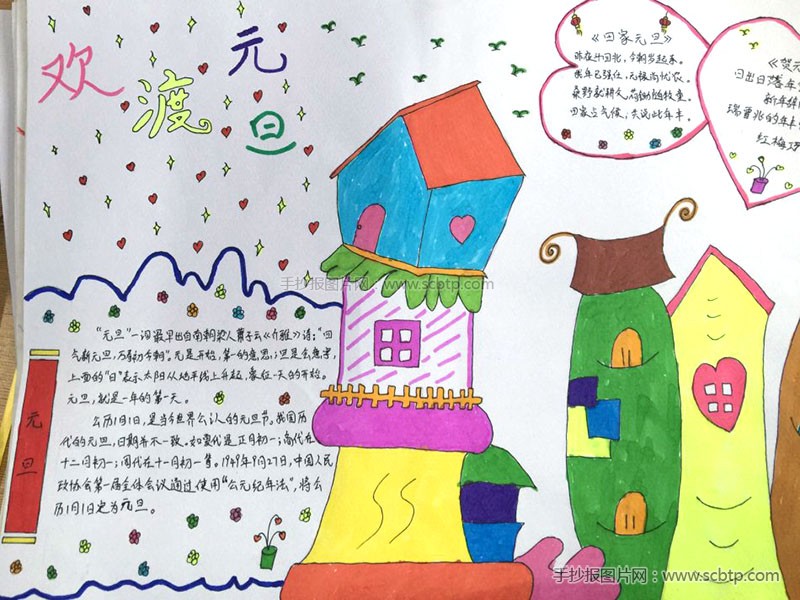 欢渡元旦
《田家元旦》
昨夜斗回北，今朝岁起东。
我年已强仕，无禄尚忧农。
桑野就耕父，荷锄随牧童。
田家占气候，共说此年丰。
日出日落
新年
红梅
手抄报图片网：www.scbtp.com
元旦
“元旦”一词最早出自南朝梁人萧子云《介雅》诗：“四
气新元旦，万寿初今朝”。元是开始，第一的意思；旦是会意字，
上面的“日”表示太阳从地平线上升起，象征一天的开始。
元旦，就是一年的第一天。
公历1月1日，是当今世界公认的元旦节。我国历
代的元旦，日期并不一致。如夏代是正月初一；商代在
十二月初一；周代在十一月初一等。1949年9月27日，中国人民
政协会第一届全体会议通过使用“公元纪年法”，将公
历1月1日定为元旦。
手抄报图片网：www.scbtp.com